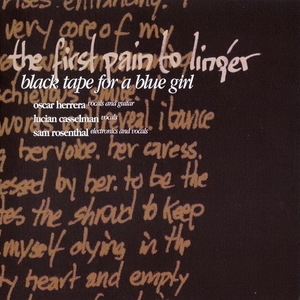 rises enhancing. I
very core of m
the first pain to linger
black tape for a blue girl
oscar herrera vocals and guitar
lucian casselman vocals
sam rosenthal electronics and vocals
her voice. her caress.
essed by her. to be the
tes the shroud to keep
myself dying in the
ty heart and empty